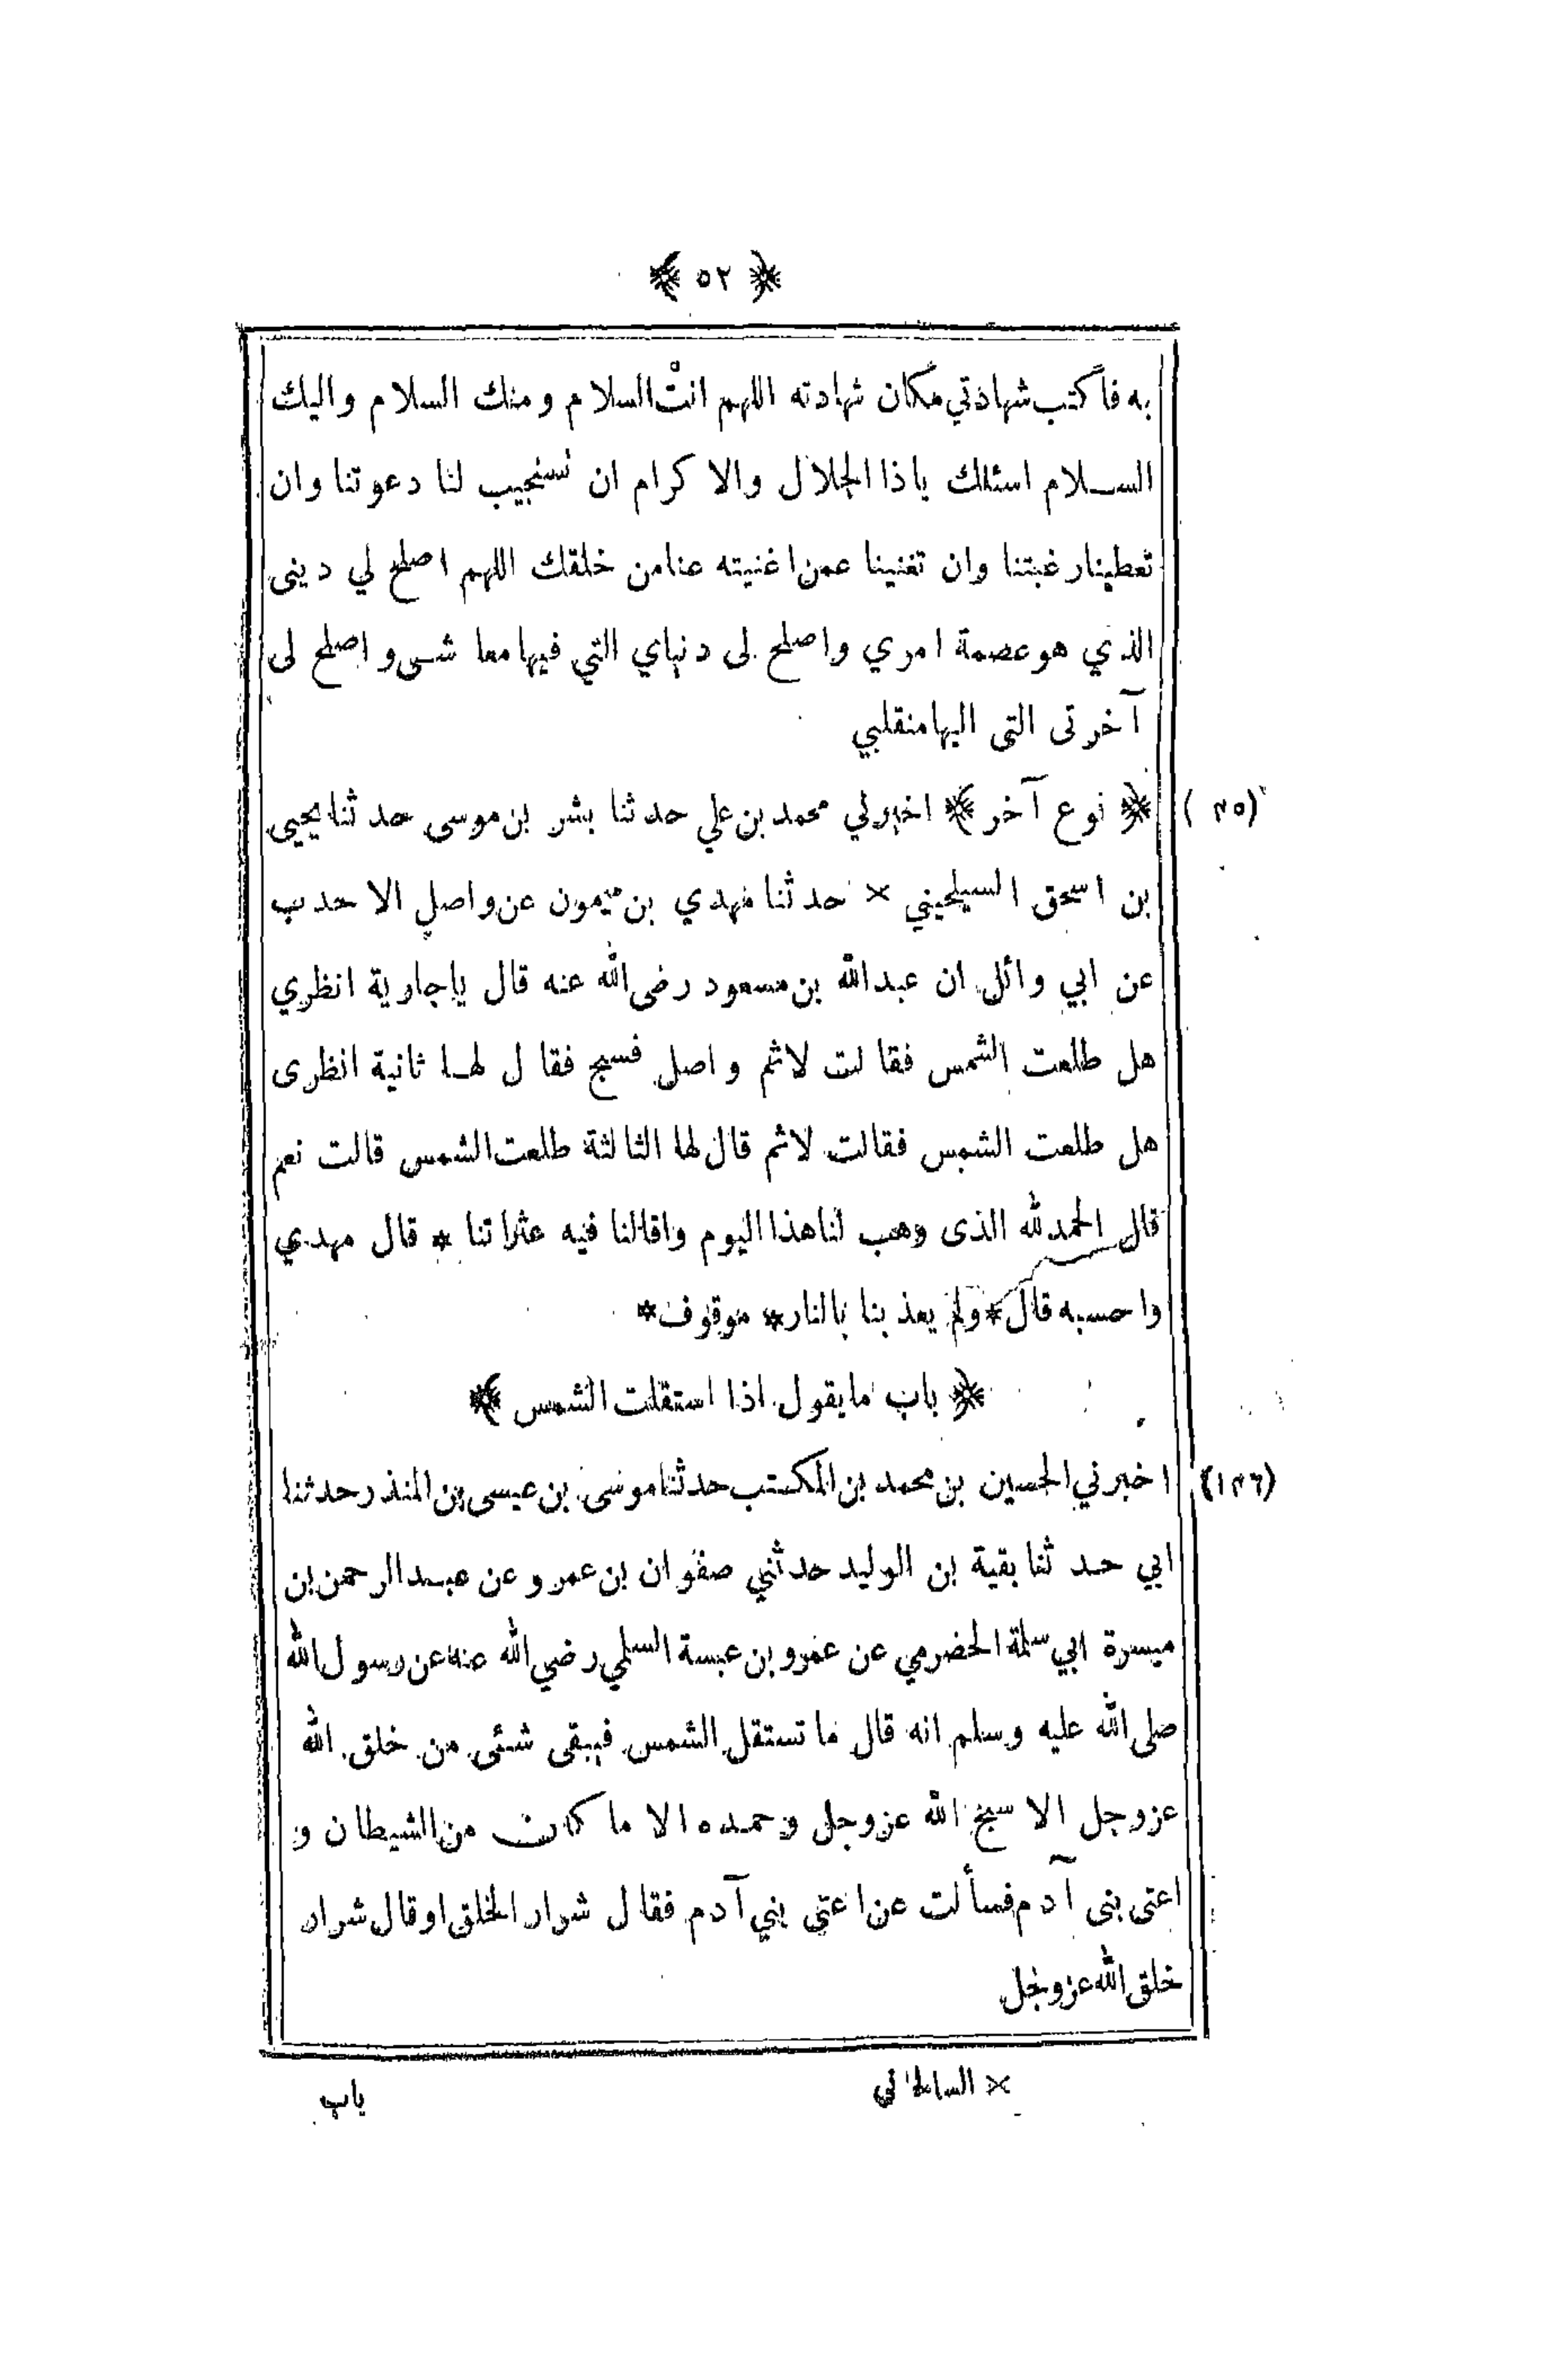 ﴿ ٥٢ ﴾
به فاكتب شهادتي مكان شهادته اللهم انت السلام ومنك السلام واليك
السلام اسئلك ياذا الجلال والاكرام ان تستجيب لنا دعوتنا وان
تعطينا رغبتنا وان تغنينا عمن اغنيته عنا من خلقك اللهم اصلح لي دينى
الذي هو عصمة امري واصلح لى دنياي التي فيها معاشى واصلح لى
آخرتى التى اليها منقلبي
﴿ نوع آخر ﴾ اخبرني محمد بن علي حدثنا بشر بن موسى حدثنا يحيى
بن اسحق السيلحيني × حدثنا مهدي بن ميمون عن واصل الاحدب
عن ابي وائل ان عبدالله بن مسعود رضى الله عنه قال ياجارية انظري
هل طلعت الشمس فقالت لاثم واصل فسبح فقال لها ثانية انظرى
هل طلعت الشمس فقالت لاثم قال لها الثالثة طلعت الشمس قالت نعم
قال الحمدلله الذى وهب لنا هذا اليوم واقالنا فيه عثراتنا * قال مهدي
واحسبه قال * ولم يعذبنا بالنار * موقوف *
﴿ باب مايقول اذا استقلت الشمس ﴾
(١٤٦) اخبرني الحسين بن محمد بن المكتب حدثنا موسى بن عيسى بن المنذر حدثنا
ابي حدثنا بقية بن الوليد حدثني صفوان بن عمرو عن عبدالرحمن بن
ميسرة ابي سلمة الحضرمي عن عمرو بن عبسة السلمي رضي الله عنه عن رسول الله
صلى الله عليه وسلم انه قال ما تستقل الشمس فيبقى شئى من خلق الله
عزوجل الا سبح الله عزوجل وحمده الا ما كان من الشيطان و
اعتى بنى آدم فسألت عن اعتى بني آدم فقال شرار الخلق او قال شرار
خلق الله عزوجل
باب